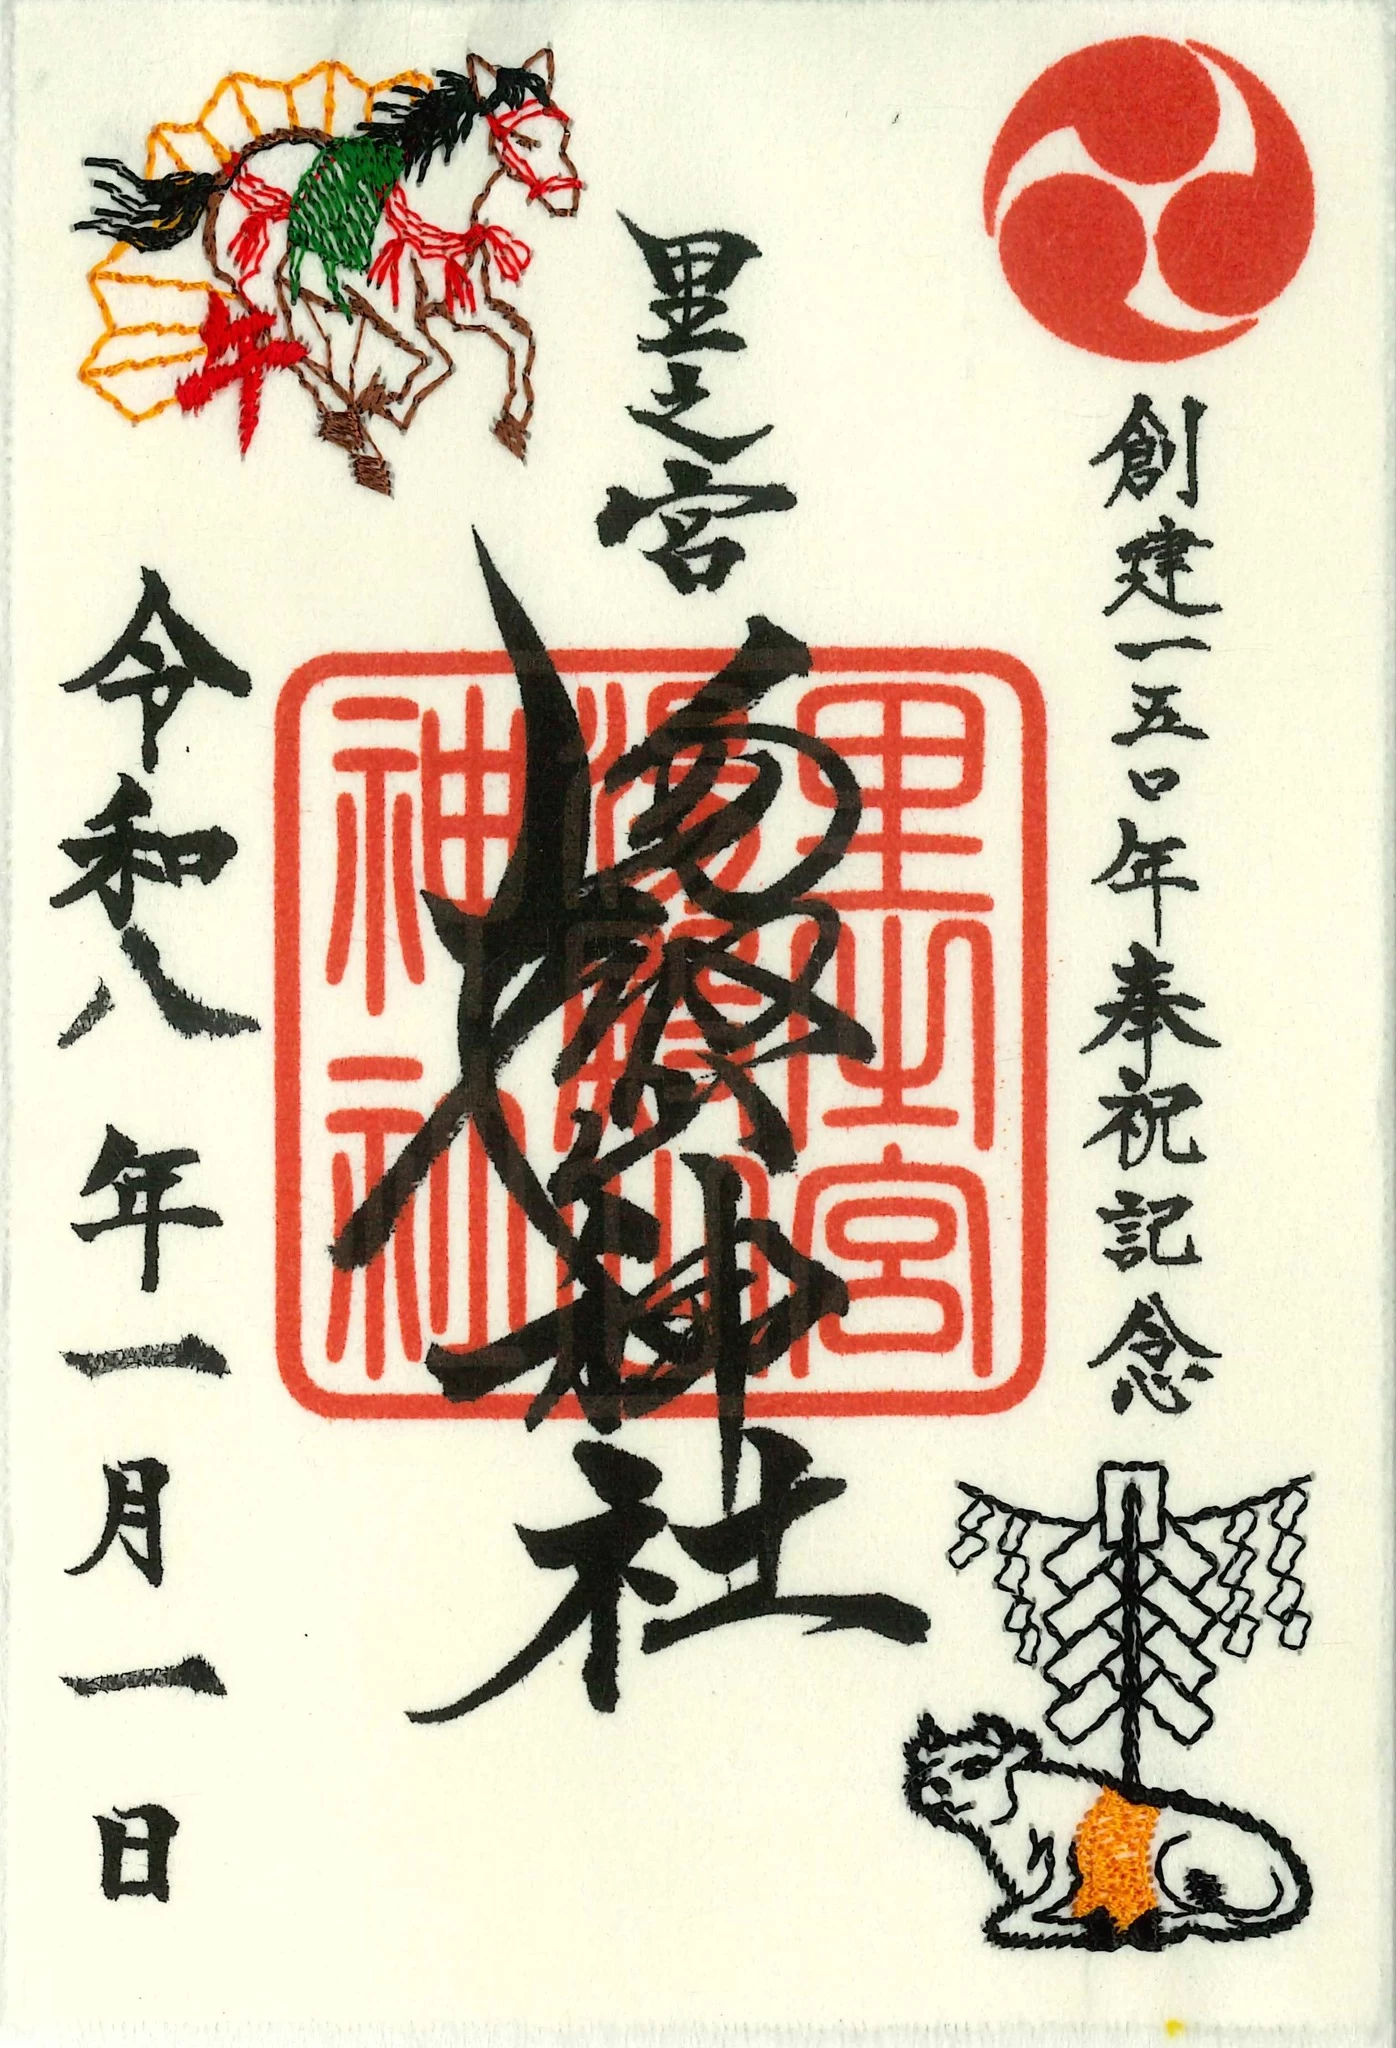 創建一五〇年奉祝記念
里之宮
湯殿山神社
里之宮
湯殿山
神社
午
令和八年一月一日